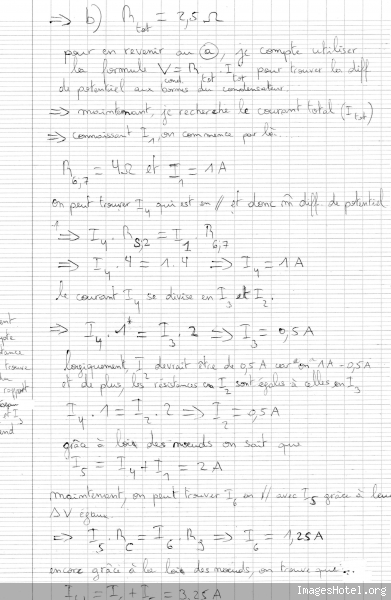 => b) R_tot = 2,5 Ω
pour en revenir au (a), je compte utiliser
la formule V_cond = R_tot . I_tot pour trouver la diff
de potentiel aux bornes du condensateur.
=> maintenant, je recherche le courant total (I_tot)
=> connaissant I_1, on commence par là...
R_6,7 = 4Ω et I_1 = 1A
on peut trouver I_4 qui est en // et donc m̂ diff. de potentiel
=> I_4 . R_5,2 = I_1 . R_6,7
=> I_4 . 4 = 1 . 4 => I_4 = 1A
le courant I_4 se divise en I_3 et I_2.
=> I_4 . 1* = I_3 . 2 => I_3 = 0,5 A
logiquement, I_2 devrait être de 0,5 A car "on" 1A - 0,5A
et de plus, les résistances en I_2 sont égales à celles en I_3
I_4 . 1 = I_2 . 2 => I_2 = 0,5 A
grâce à loi des nœuds on sait que
I_5 = I_4 + I_1 = 2A
maintenant, on peut trouver I_6 en // avec I_5 grâce à leur
ΔV égaux.
=> I_5 . R_C = I_6 . R_3 => I_6 = 1,25A
encore grâce à la loi des nœuds, on trouve que...
3,25 A
ImagesHotel.org